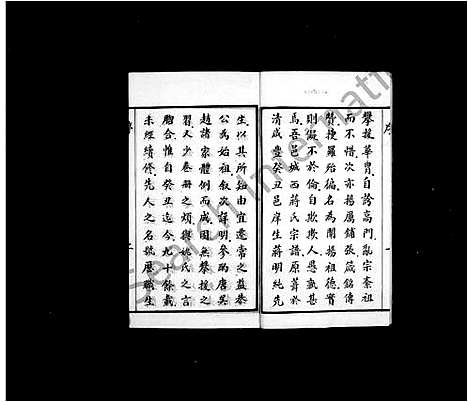 攀援華胄自誇高門亂宗紊祖
而不惜次亦揚厲鋪張箴銘傳
贊搜羅殆徧名為闡揚祖德實
則擬不於倫自欺欺人愚孰甚
焉吾邑城西蔣氏宗譜原葺於
清咸豐癸丑邑庠生蔣明純先
序
一
生以其所始由宜遷常之益恭
公為始祖叙次詳明參酌唐吳
趙諸家體例而成固無攀援之
習又少卷冊之煩與姚氏之言
脗合惟自癸丑迄今九十餘載
未經續修先人之名號歷職生
二
Search International